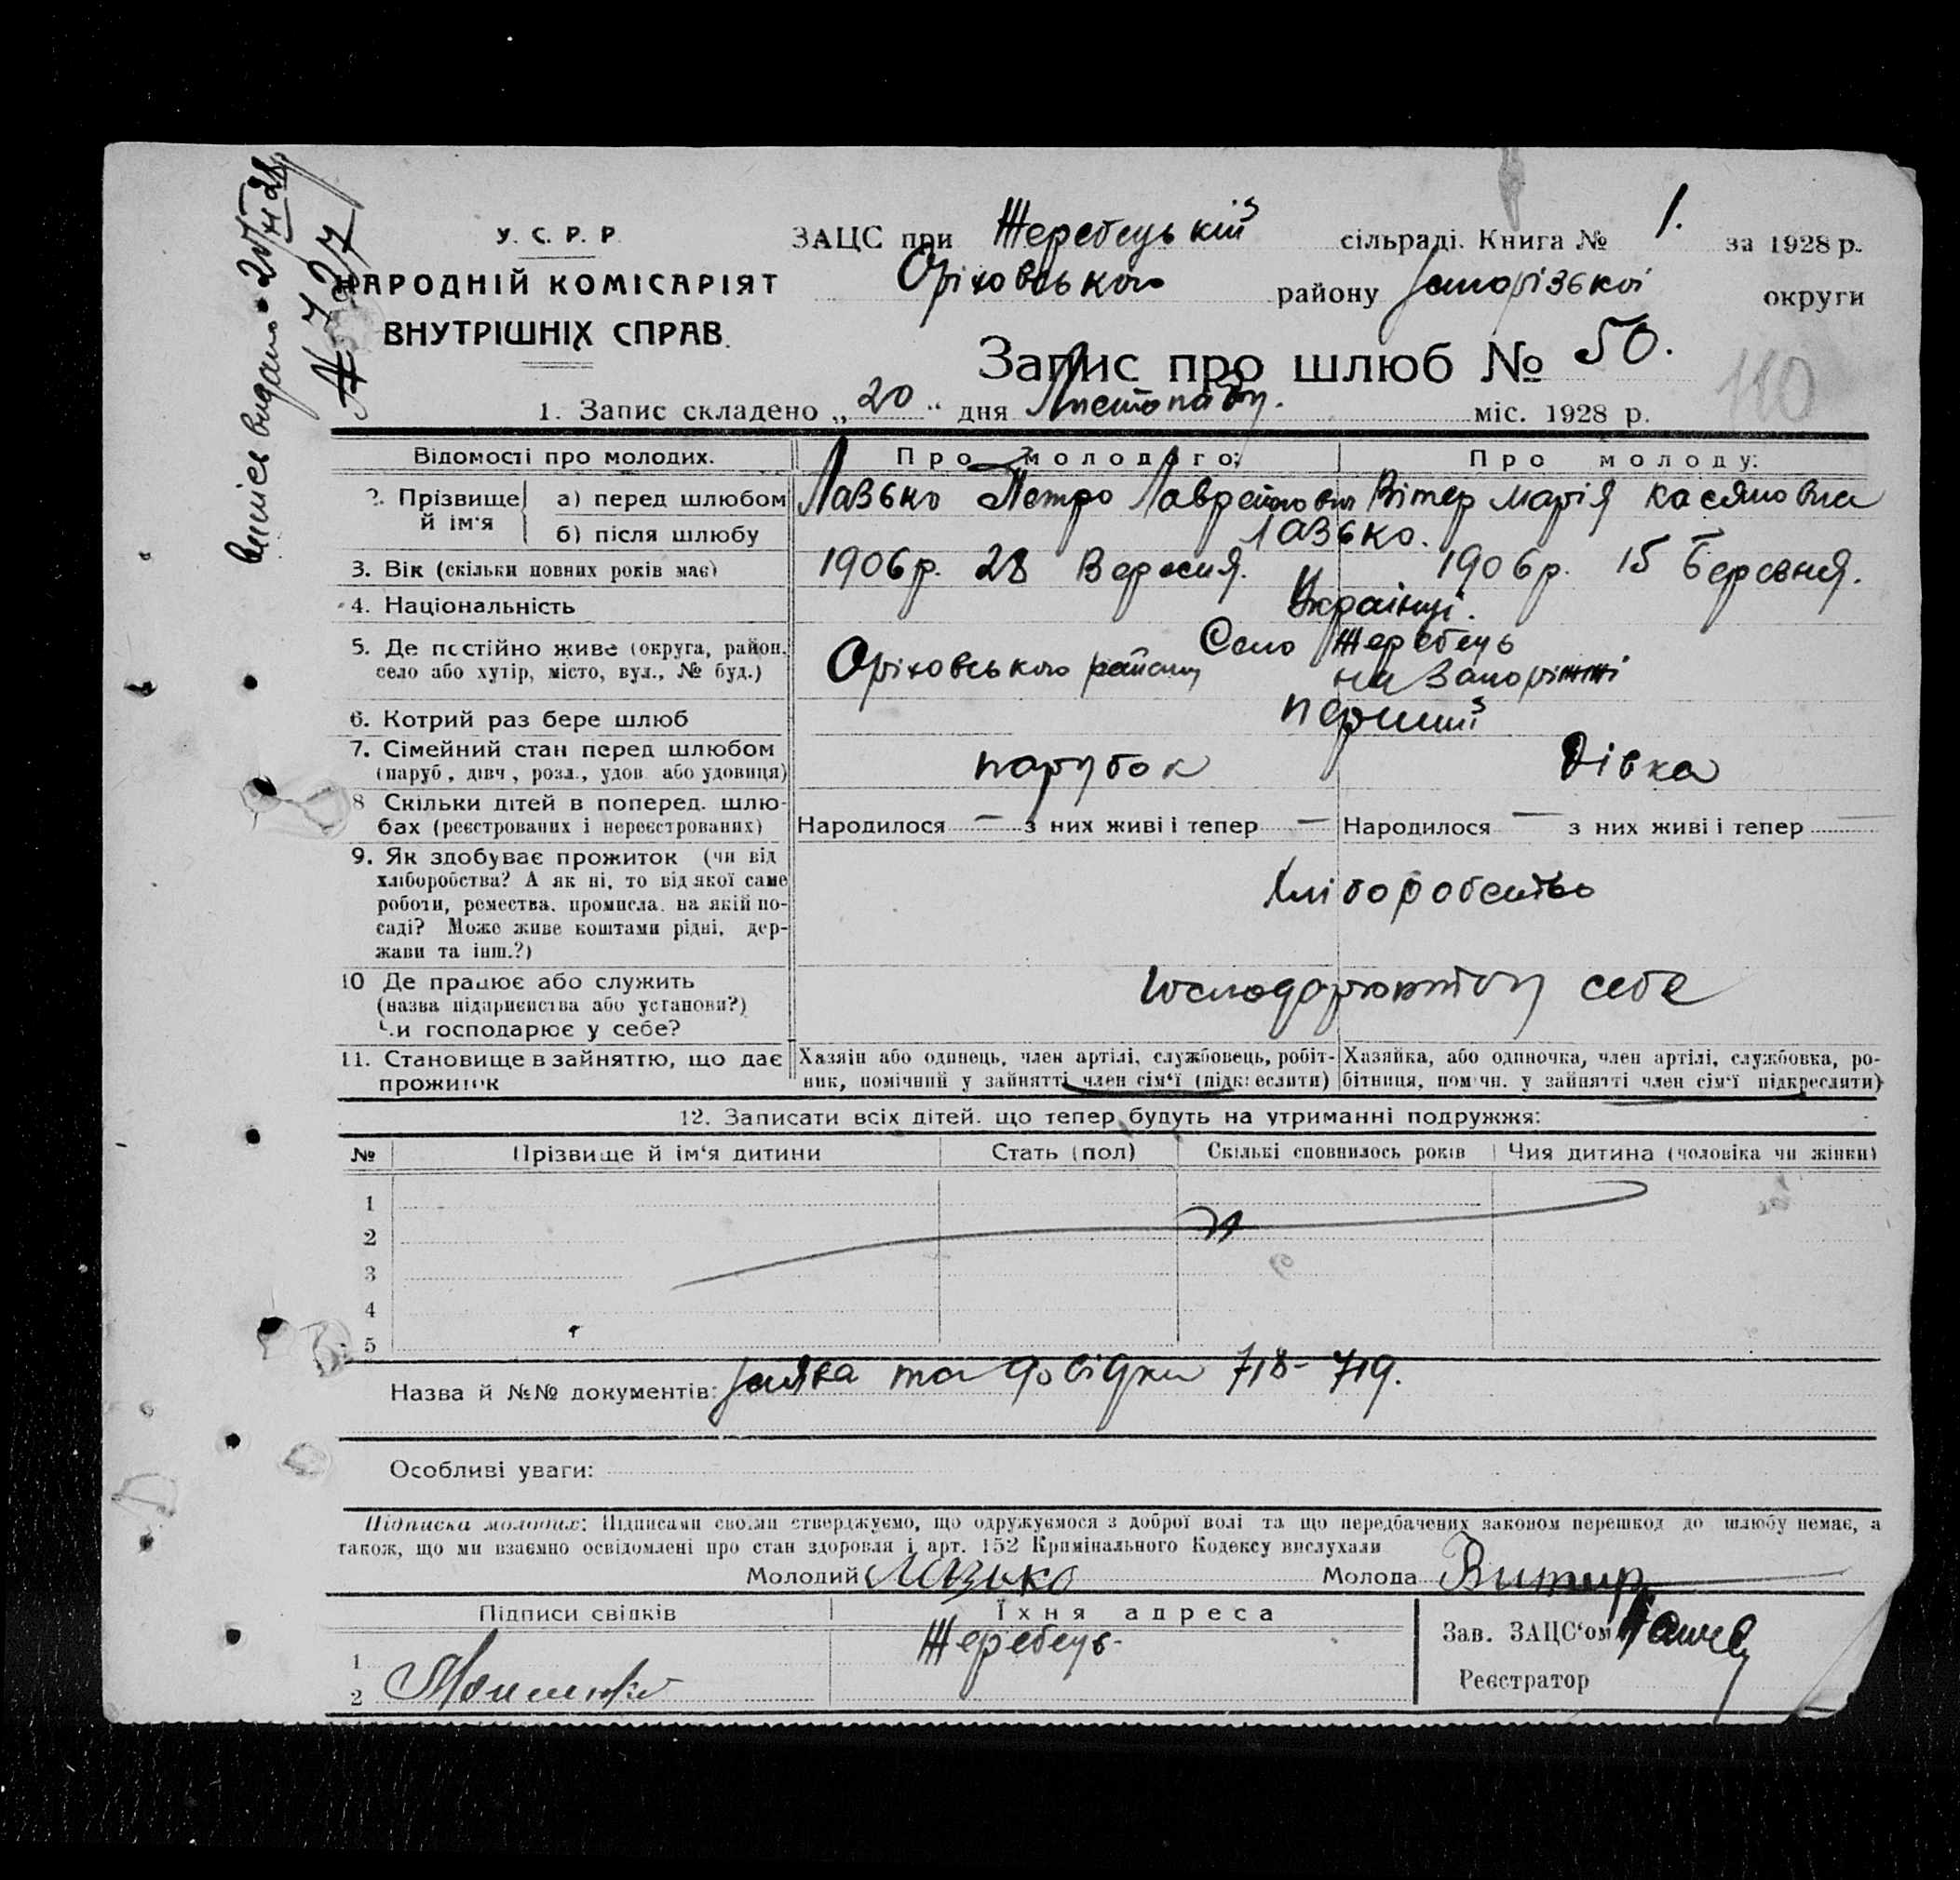 Випись видано 20/XI 28
№ 727
У. С. Р. Р.
НАРОДНІЙ КОМІСАРІЯТ
ВНУТРІШНІХ СПРАВ.
ЗАЦС при Жеребецькій сільраді. Книга № 1. за 1928 р.
Оріховського району Запорізької округи
Запис про шлюб № 50.
110
1. Запис складено „20“ дня Листопаду. міс. 1928 р.
Відомості про молодих. Про молодого: Про молоду:
2. Прізвище й ім‘я а) перед шлюбом Лазько Петро Лаврентович Вітер Марія Касяновна
б) після шлюбу Лазько.
3. Вік (скільки повних років має) 1906р. 28 Вересня. 1906р. 15 Березня.
4. Національність Українці.
5. Де постійно живе (округа, район, село або хутір, місто, вул., № буд.) Село Жеребець
Оріховського району на Запоріжжі
6. Котрий раз бере шлюб перший
7. Сімейний стан перед шлюбом
(паруб, дівч, розл., удов. або удовиця) парубок дівка
8 Скільки дітей в поперед. шлю-
бах (реєстрованих і нереєстрованих) Народилося — з них живі і тепер — Народилося — з них живі і тепер —
9. Як здобуває прожиток (чи від
хліборобства? А як ні, то від якої саме
роботи, ремества, промисла, на якій по-
саді? Може живе коштами рідні, дер-
жави та інш.?)
Хліборобство
10 Де працює або служить
(назва підприємства або установи?)
Чи господарює у себе?
Господарюють у себе
11. Становище в зайняттю, що дає
прожиток
Хазяїн або одинець, член артілі, службовець, робіт-
ник, помічний у зайнятті член сім‘ї (підкреслити)
Хазяйка, або одиночка, член артілі, службовка, ро-
бітниця, помічн. у зайнятті член сім‘ї підкреслити)
12. Записати всіх дітей, що тепер будуть на утриманні подружжя:
№ Прізвище й ім‘я дитини Стать (пол) Скількі сповнилось років Чия дитина (чоловіка чи жінки)
1
2
3
4
5
Назва й №№ документів: Заява та довідки 718-719.
Особливі уваги:
Підписка молодих: Підписами своїми стверджуємо, що одружуємося з доброї волі та що передбачених законом перешкод до шлюбу немає, а
також, що ми взаємно освідомлені про стан здоровля і арт. 152 Кримінального Кодексу вислухали
Молодий Лазько Молода Витир
Підписи свідків Їхня адреса
Жеребець
1
2
Зав. ЗАЦС‘ом
Реєстратор